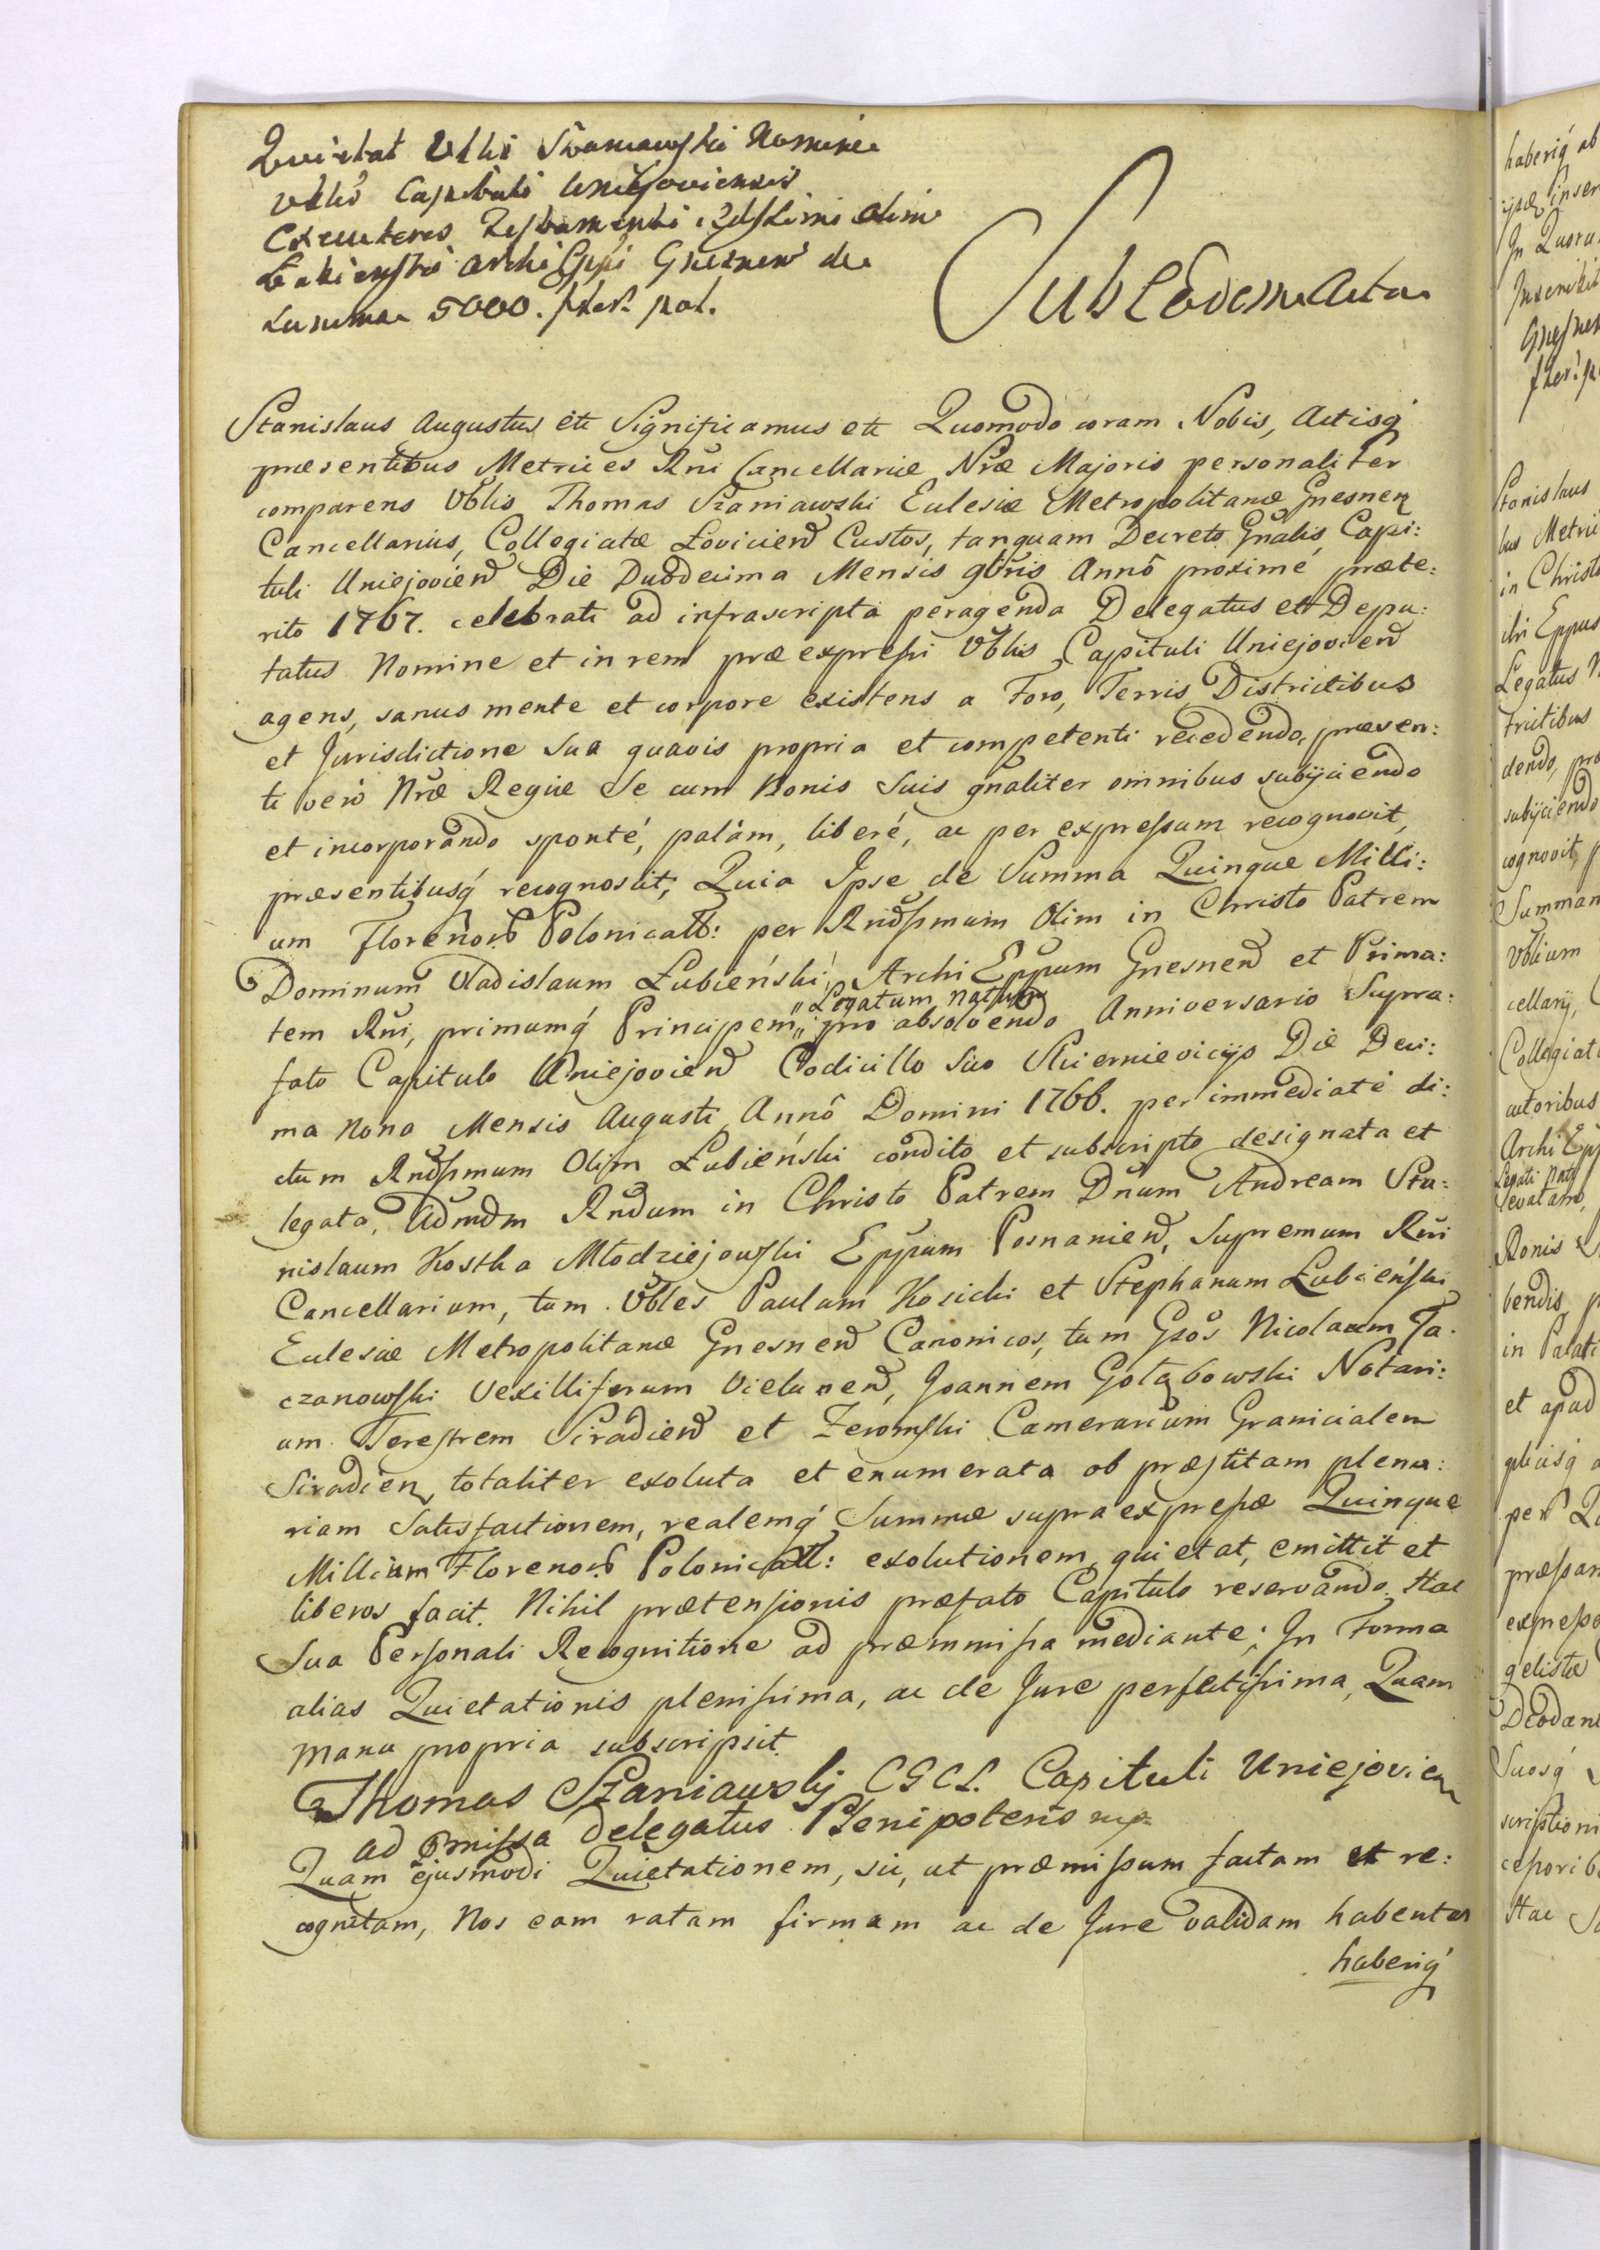 Quietat Vblis Szaniawski Nomine
Vblis Capituli Uniejoviensis
Executores Testamenti Celssimi olim
Łubieński Archi Eppi Gnesnen de
Summa 5000. flor. pol.
Sub Eodem Actu
Stanislaus Augustus ett Significamus ett Quomodo coram Nobis, Actisq́
præsentibus Metrices Rñi Cancellariæ Nræ Majoris personaliter
comparens Vblis Thomas Szaniawski Eulesiæ Metropolitanæ Gnesnen
Cancellarius, Collegiatæ Łovicien Custos, tanquam Decreto Gñalis Capi:
tuli Uniejovien Die Duodecima Mensis 9bris Annô proximé præte:
rito 1767. celebrati ad infrascripta peragenda Delegatus ett Depu:
tatus Nomine et in rem præexpressi Vblis Capituli Uniejovien
agens, sanus mente et corpore existens a Foro, Terris Districtibus
et Jurisdictione sua quavis propria et competenti recedendo, præsen:
ti veró Nræ Regiæ Se cum Bonis Suis gñaliter omnibus subijciendo
et incorporando sponté, palàm, liberé, ac per expressum recognovit,
præsentibusq́ recognoscit, Quia Ipse de Summa Quinque Milli:
um Florenor. Polonicall: per Rndssmum Olim in Christo Patrem
Dominum Vladislaum Łubieński, Archi Eppum Gnesnen et Prima:
tem Rñi, primumq́ Principem,
"Legatum natum
" pro absolvendo Anniversario Supra:
fato Capitulo Uniejovien Codicillo Suo Skiernievicijs Die Deci:
ma Nona Mensis Augusti Annô Domini 1766. per immediaté di:
ctum Rndssmum Olim Łubieński condito et subscripto designata et
legata, Admdm Rndum in Christo Patrem Dnum Andream Sta:
nislaum Kostka Młodziejowski Eppum Posnanien, Supremum Rñi
Cancellarium, tum Vbles Paulum Kosicki et Stephanum Łubieński
Eulesiæ Metropolitanæ Gnesnen Canonicos, tum Gsos Nicolaum Ta:
czanowski Vexilliferum Vielunen, Joannem Gołąbowski Notari:
um Terestrem Siradien et Zeromski Camerarium Granicialem
Siradien, totaliter exoluta et enumerata ob præstitam plena:
riam Satisfactionem, realemq́ Summæ supraexpressæ Quinque
Millium Florenor. Polonicall: exolutionem quietat, emittit et
liberos facit. Nihil prætensionis præfato Capitulo reservando. Hac
Sua Personali Recognitione ad præmmissa mediante; In Forma
alias Quietationis plenissima, ac de Jure perfectissima, Quam
manu propria subscripsit.
Thomas Szaniawskj CGCL. Capituli Uniejovien
ad pmissa Delegatus Plenipotens mp
Quam ejusmodi Quietationem, sic, ut præmissum factam et re:
cognitam, Nos eam ratam firmam ac de Jure validam habentes
haberiq́